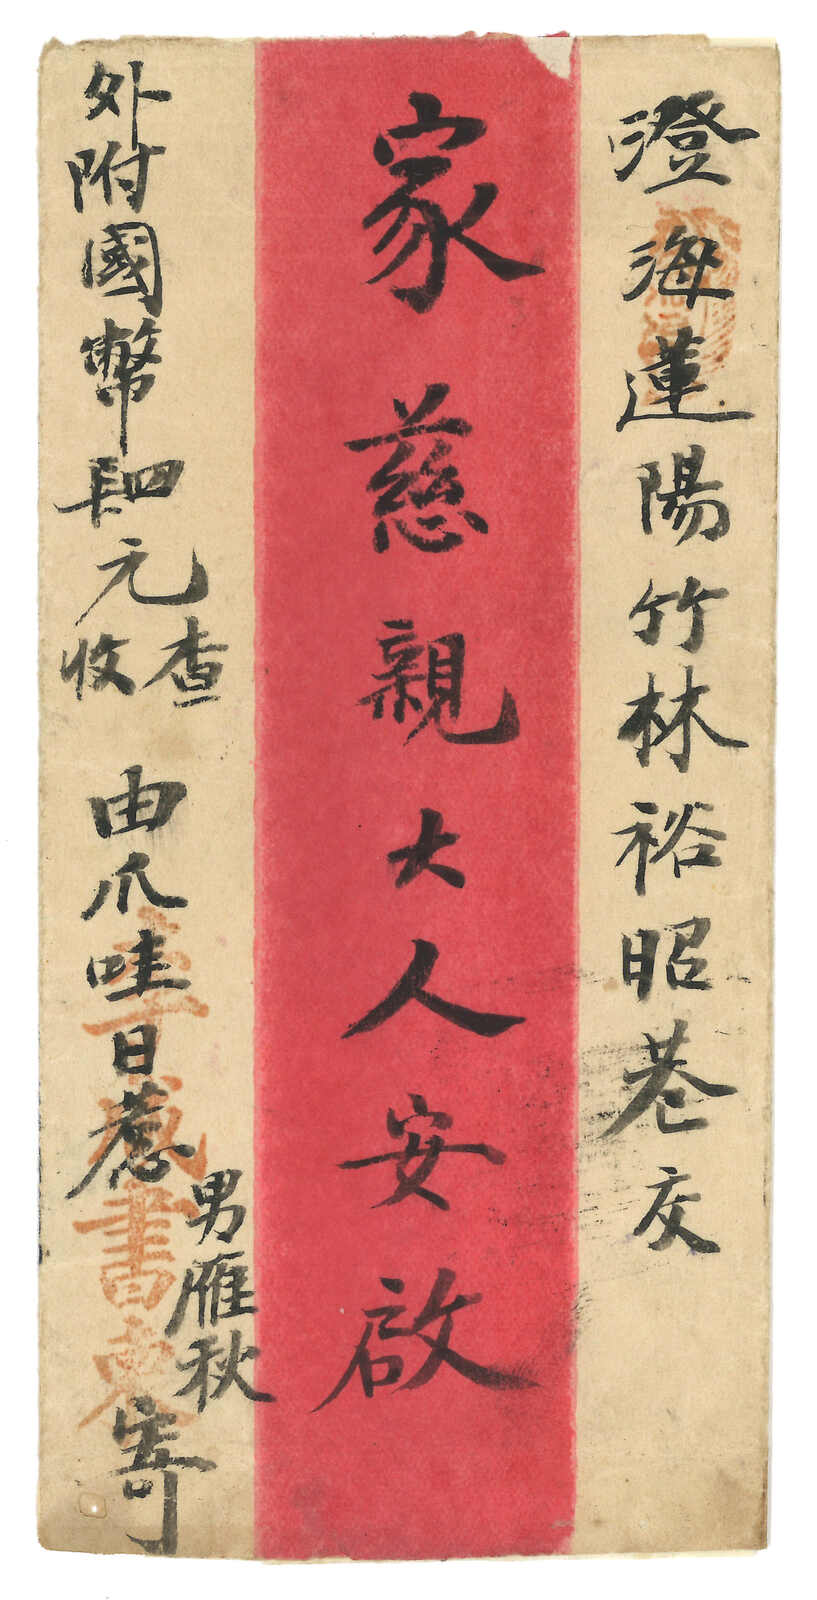 澄海蓮陽竹林裕昭巷交
家慈親大人安啟
外附國幣肆元查收
由爪哇日惹男雁秋寄